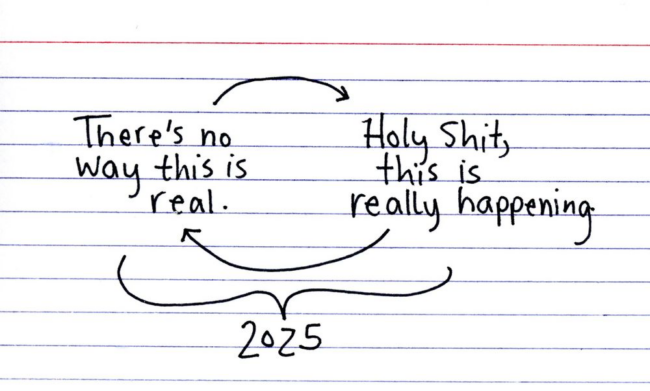 There's no
way this is
real.
Holy Shit,
this is
really happening
2025